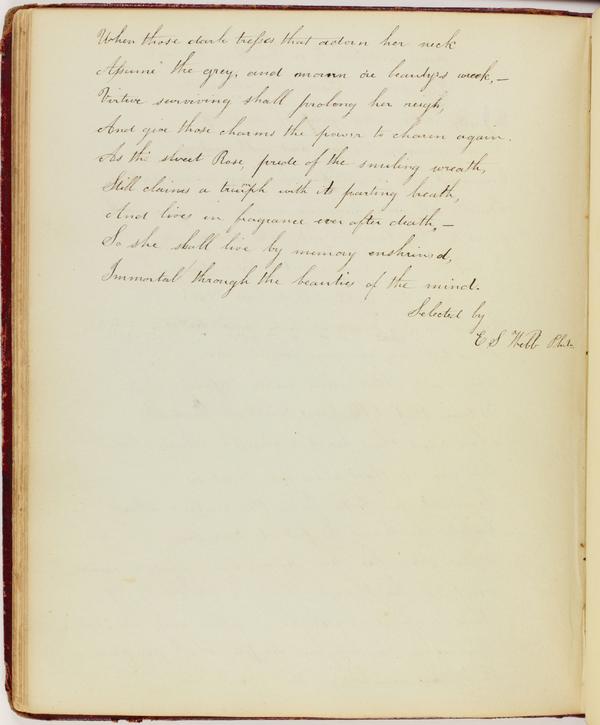 When those dark tresses that adorn her neck
Assume the grey, and mourn o'er beauty's wreck,—
Virtue surviving shall prolong her reign,
And give those charms the power to charm again.
As the sweet Rose, pride of the smiling wreath,
Still claims a triumph with its parting breath,
And lives in fragrance ever after death,—
So she shall live by memory enshrined,
Immortal through the beauties of the mind.
Selected by
E S Webb Phila